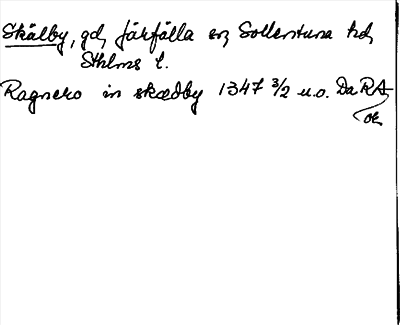 Skälby, gd, Järfälla sn, Sollentuna hd,
Sthlms l.
Ragnero in skædby 1347 3/2 u.o. DaRA
ok